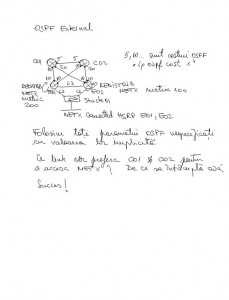 OSPF External
5, 10 ... sunt costuri OSPF
"ip ospf cost x"
CO1
CO2
5
10
5
REDISTRIB
NETX
metric
200
REDISTRIB
NETX metric 100
EO2
L2
Stack 01
NETX Connected HSRP EO1, EO2
Folosim toti parametrii OSPF nespecificați
cu valoarea lor implicită
Ce link vor prefera CO1 și CO2 pentru
a accesa NETX? De ce se întâmplă așa
Succes!